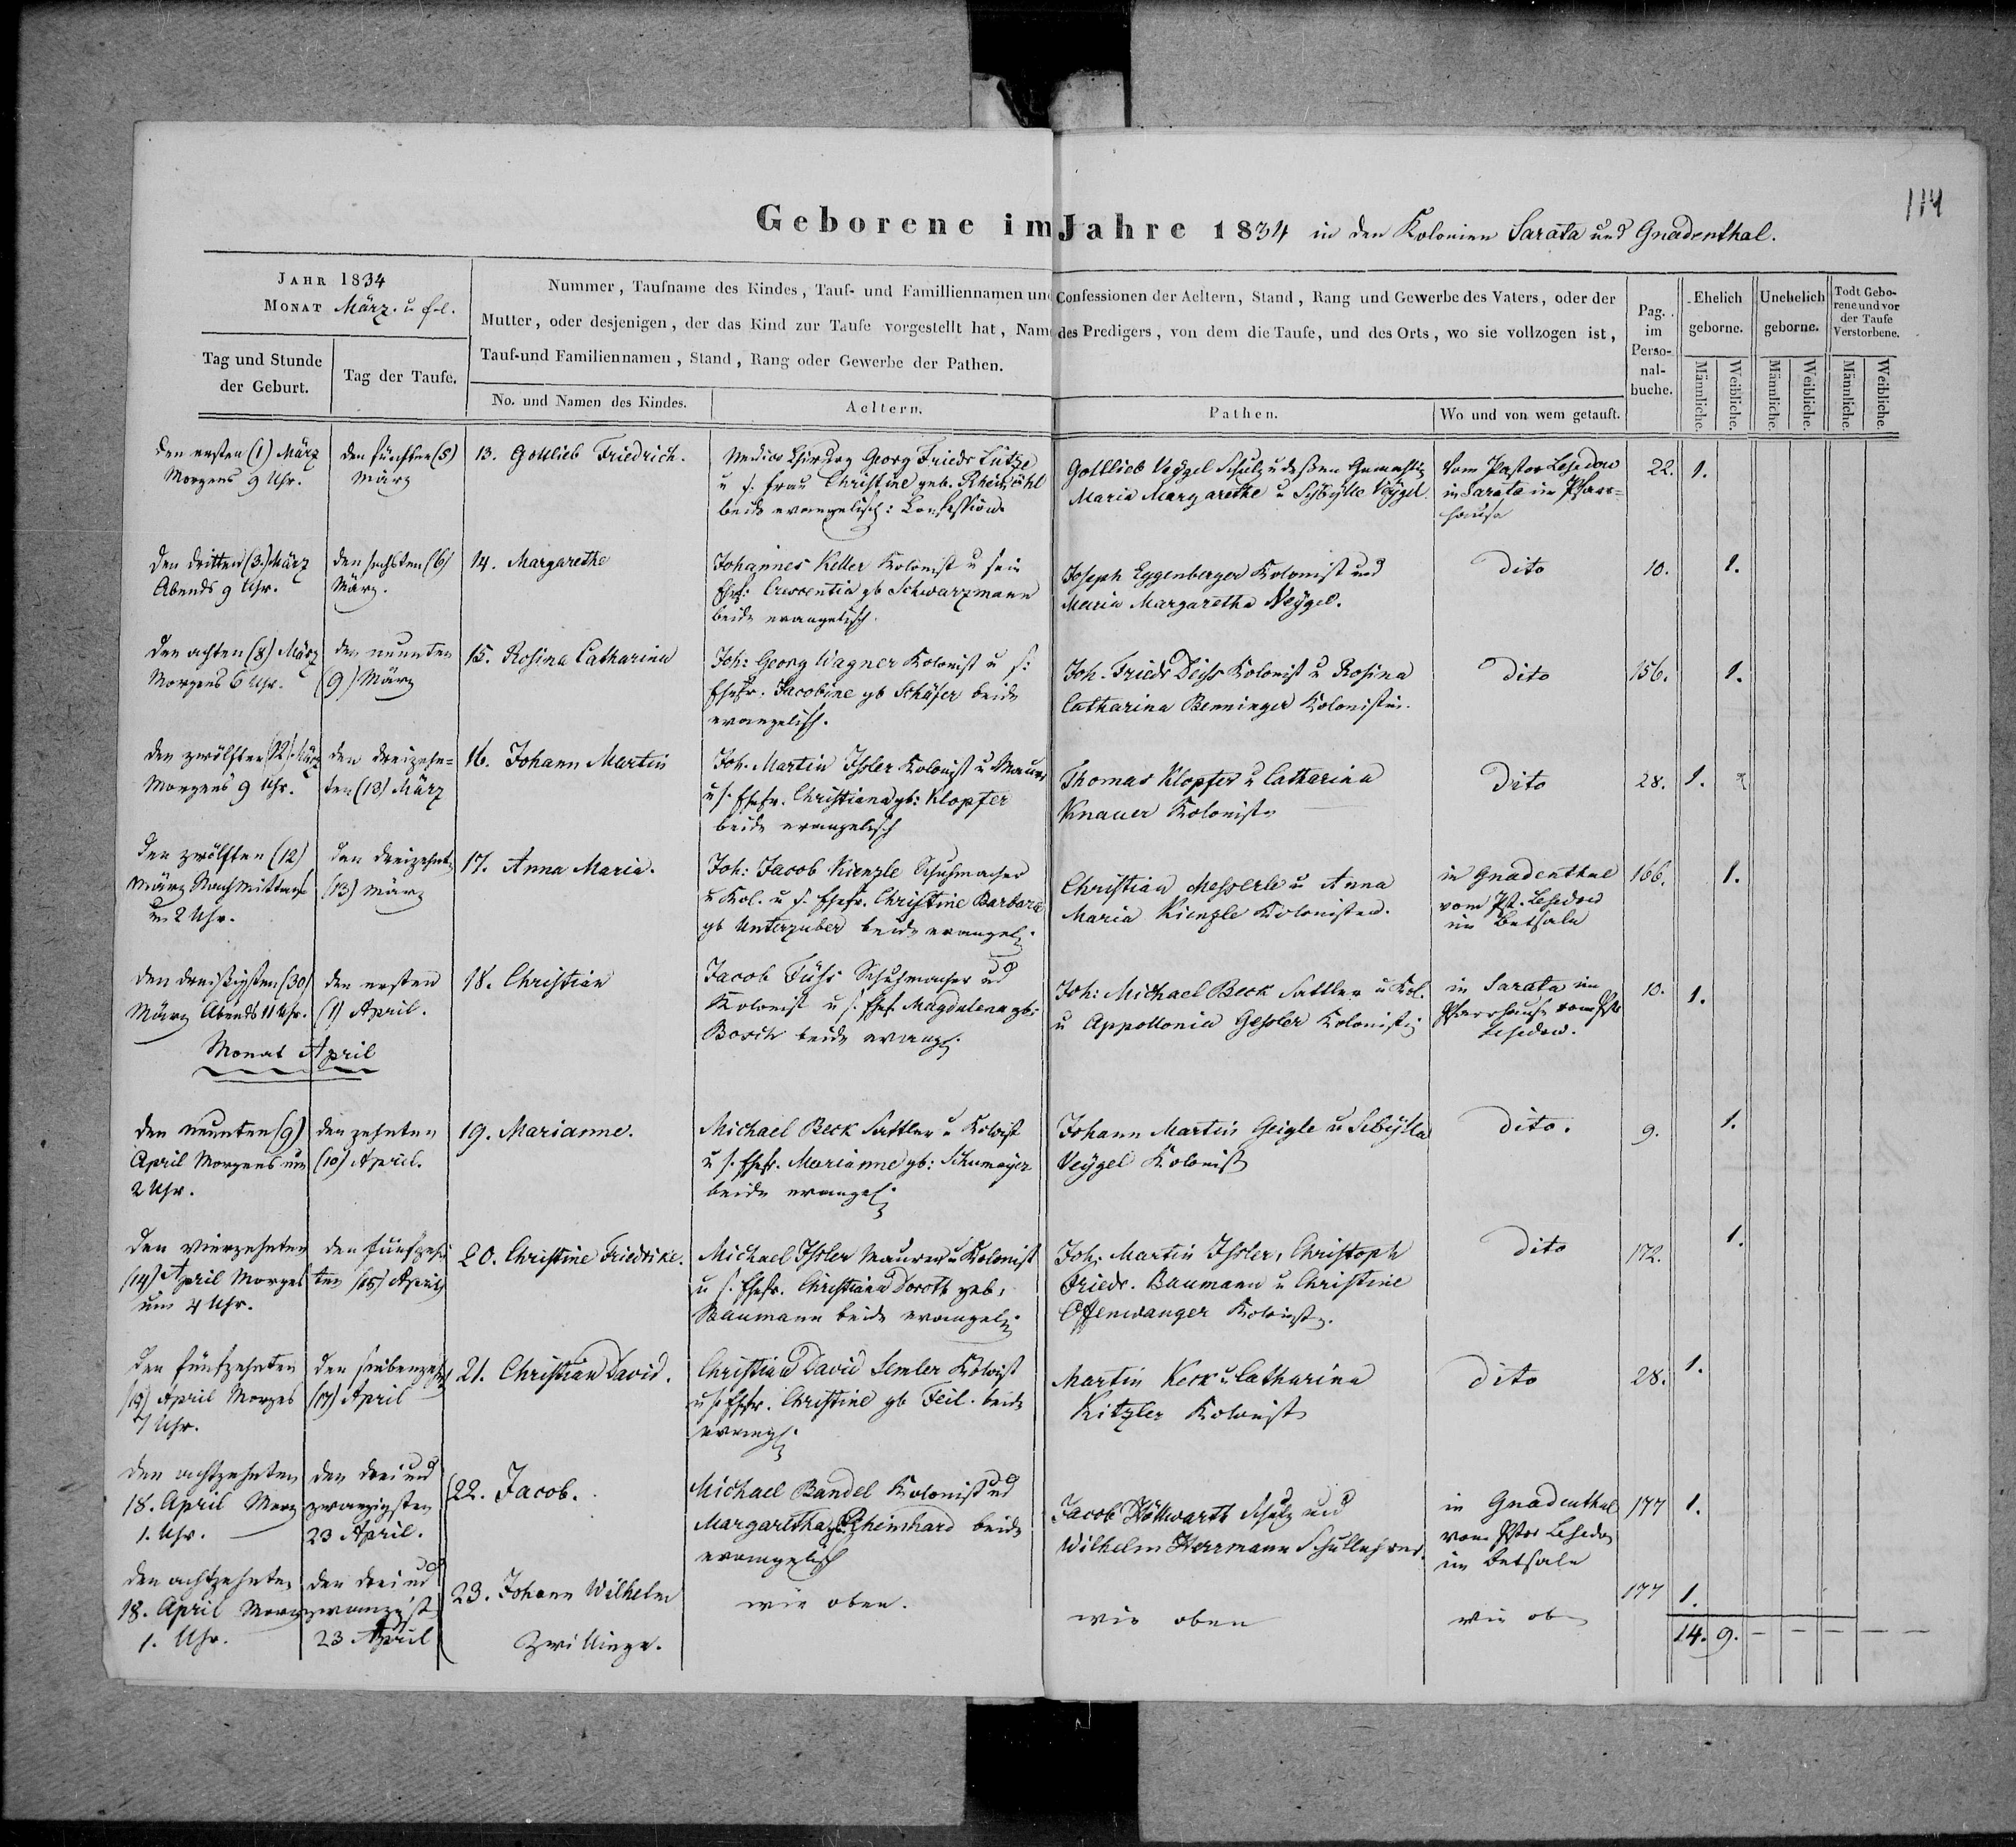 114
Geborene im Jahre 1834 in den Kolonien Sarata und Gnadenthal.
JAHR 1834
MONAT März. u f.l.
Tag und Stunde
der Geburt.
Tag der Taufe.
Nummer, Taufname des Kindes, Tauf- und Familliennamen und Confessionen der Aeltern, Stand, Rang und Gewerbe des Vaters, oder der
Mutter, oder desjenigen, der das Kind zur Taufe vorgestellt hat, Name des Predigers, von dem die Taufe, und des Orts, wo sie vollzogen ist,
Tauf-und Familiennamen, Stand, Rang oder Gewerbe der Pathen.
No. und Namen des Kindes.
Aeltern.
Pathen.
Wo und von wem getauft.
Pag.
im
Perso-
nal-
buche.
Ehelich
geborne.
Unehelich
geborne.
Todt Gebo-
rene und vor
der Taufe
Verstorbene.
Männliche.
Weibliche.
Männliche.
Weibliche.
Männliche.
Weibliche.
den ersten (1) März
Morgens 9 Uhr.
den fünften (5)
März
13. Gottlieb Friedrich.
Georg Friedr Lütze
u s. Frau Christine geb.
beide evangelisch: Confession
Gottlieb Veygel Schulz u dessen
Maria Margarethe u Sybylle Veygel
vom Pastor Lesedow
in Sarata im Pfarr=
hause
22. 1.
den dritten (3.) März
Abends 9 Uhr.
den sechsten (6)
März.
14. Margarethe
Johannes Keller Kolonist u sein
Ehef: Crescentia gb Schwarzmann
beide evangelisch.
Joseph Eggenberger Kolonist und
Maria Margaretha Veygel.
dito
10. 1.
den achten (8) März
Morgens 6 Uhr.
den neunten
(9) März
15. Rosina Catharina
Joh: Georg Wagner Kolonist u s:
Ehefr. Jacobine gb Schäfer beide
evangelisch.
Joh. Friedr Deiss Kolonist u Rosina
Catharina Benninger Kolonisten.
dito
156. 1.
den zwölften (12). März
Morgens 9 Uhr.
den dreizehn=
ten (13) März
16. Johann Martin
Joh. Martin Issler Kolonist u Maurer
u s. Ehefr. Christiana gb: Klopfer
beide evangelisch
Thomas Klopfer u Catharina
Knauer Kolonist
dito
28. 1.
den zwölften (12)
März Nachmittags
um 2 Uhr.
den dreizehnten
(13) März
17. Anna Maria.
Joh: Jacob Kienzle Schuhmacher
u Kol. u s. Ehefr. Christine Barbara
gb Unterzuber beide evangel:
Christian Messerle u Anna
Maria Kienzle Kolonisten.
in Gnadenthal
vom Pst. Lesedow
im Betsale
166. 1.
den dreissigsten (30)
März Abends 11 Uhr.
den ersten
(1) April.
18. Christian
Jacob Fühs Schuhmacher und
Kolonist u s. Ehef. Magdalena gb:
Bosch beide evang:
Joh: Michael Beck Sattler u Kol.
u Appollonia Gessler Kolonist
in Sarata im
Pfarrhause vom Pstr
Lesedow.
10. 1.
Monat April
den neunten (9)
April Morgens um
2 Uhr.
den zehnten
(10) April.
19. Marianne.
Michael Beck Sattler u Kolonist
u s. Ehefr. Marianne gb: Schumayer
beide evangel:
Johann Martin Geigle u Sibylla
Veygel Kolonist
dito.
9. 1.
den vierzehnten
(14) April Morgens
um 4 Uhr.
den fünfzehn
ten (15) April
20. Christine Friedrike.
Michael Issler Maurer u Kolonist
u s. Ehefr. Christiana Doroth geb.
Baumann beide evangel:
Joh: Martin Issler, Christoph
Friedr. Baumann u Christine
Offenwanger Kolonist.
dito
172. 1.
den fünfzehnten
April Morgens
7 Uhr.
den siebenzehn
(17) April
21. Christian David.
Christian David Semler Kolonist
u s Ehefr. Christine gb Feil. beide
evang:
Martin Keck u Catharina
Kitzler Kolonist
dito
28. 1.
den achtzehnten
18. April Morg
1. Uhr.
den drei und
zwanzigsten
23 April.
22. Jacob.
Michael Bandel Kolonist und
Margaretha gb Rheinhard beide
evangelisch
Jacob Höllwarth Schulz und
Wilhelm Herrmann Schullehrer.
in Gnadenthal
vom Pstor Lesedow
im Betsale
177 1.
den achtzehnten
18. April Morg
1. Uhr.
den drei und
zwanzigst
23. April
23. Johann Wilhelm
Zwillinge.
wie oben.
wie oben
wie oben
177 1.
14. 9. — — — —